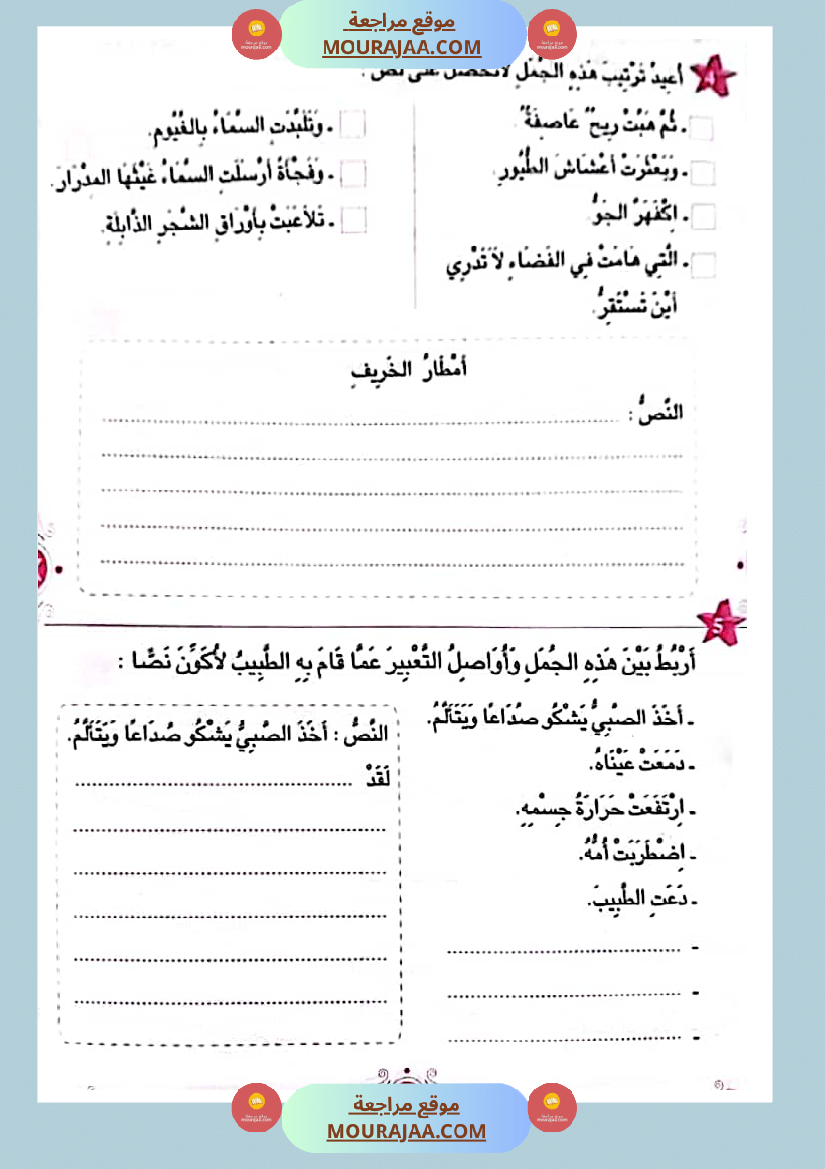 موقع مراجعة
MOURAJAA.COM
4
أُعِيدُ تَرْتِيبَ هَذِهِ الجُمَلِ لأَتَحَصَّلَ عَلَى نَصٍّ :
- ثُمَّ هَبَّتْ رِيحٌ عَاصِفَةٌ.
- وَبَعْثَرَتْ أَعْشَاشَ الطُّيُورِ.
- اِكْفَهَرَّ الجَوُّ.
- الَّتِي هَامَتْ فِي الفَضَاءِ لاَ تَدْرِي
أَيْنَ تَسْتَقِرُّ.
- وَتَلَبَّدَتِ السَّمَاءُ بِالغُيُومِ.
- وَفَجْأَةً أَرْسَلَتِ السَّمَاءُ غَيْثَهَا المِدْرَارَ.
- تَلاَعَبَتْ بِأَوْرَاقِ الشَّجَرِ الذَّابِلَةِ.
أَمْطَارُ الخَرِيفِ
النَّصُّ :
5
أَرْبُطُ بَيْنَ هَذِهِ الجُمَلِ وَأُوَاصِلُ التَّعْبِيرَ عَمَّا قَامَ بِهِ الطَّبِيبُ لأُكَوِّنَ نَصًّا :
- أَخَذَ الصَّبِيُّ يَشْكُو صُدَاعًا وَيَتَأَلَّمُ.
- دَمَعَتْ عَيْنَاهُ.
- اِرْتَفَعَتْ حَرَارَةُ جِسْمِهِ.
- اِضْطَرَبَتْ أُمُّهُ.
- دَعَتِ الطَّبِيبَ.
-
-
-
النَّصُّ : أَخَذَ الصَّبِيُّ يَشْكُو صُدَاعًا وَيَتَأَلَّمُ.
لَقَدْ
موقع مراجعة
MOURAJAA.COM